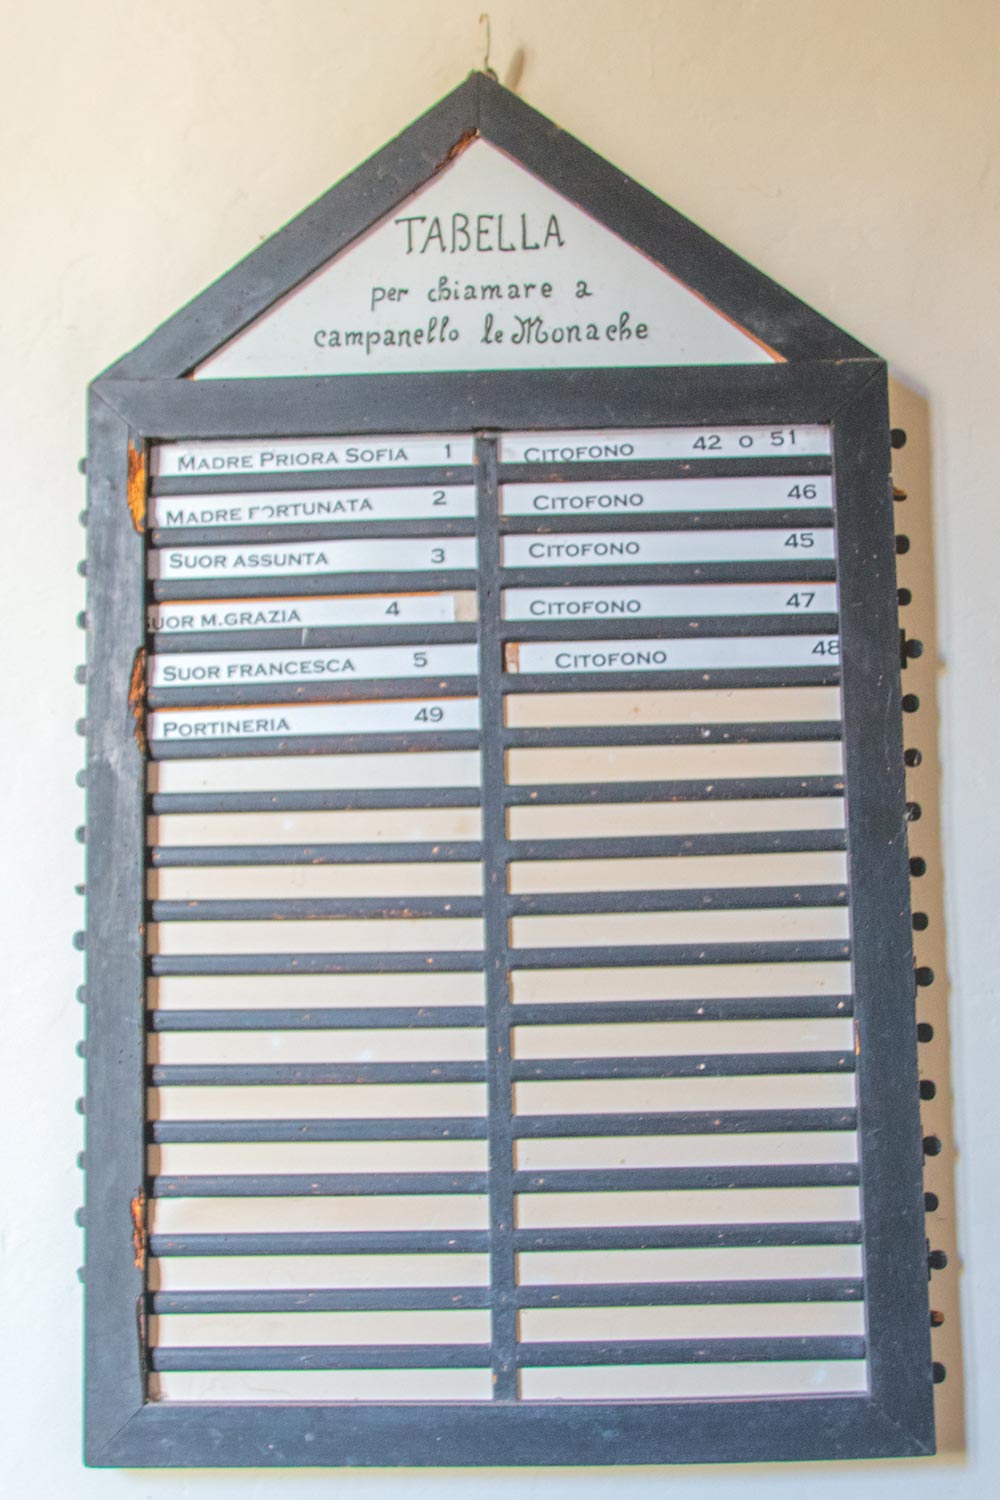 TABELLA
per chiamare a
campanello le Monache
MADRE PRIORA SOFIA 1 CITOFONO 42 O 51
MADRE FORTUNATA 2 CITOFONO 46
SUOR ASSUNTA 3 CITOFONO 45
SUOR M.GRAZIA 4 CITOFONO 47
SUOR FRANCESCA 5 CITOFONO 48
PORTINERIA 49